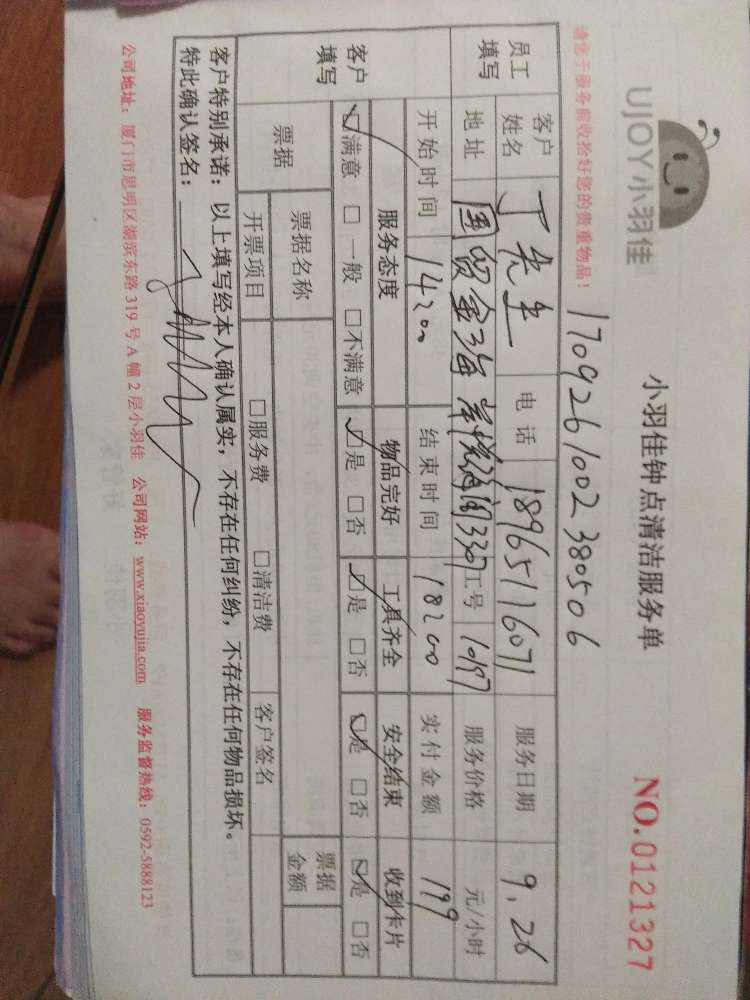 UJOY小羽佳
小羽佳钟点清洁服务单
NO.0121327
请您于服务前收拾好您的贵重物品!
1709261002380506
员工填写
客户姓名 丁先生 电话 18965116071 服务日期 9.26
地址 国贸金海岸 3307 工号 10197 服务价格 元/小时
开始时间 14:00 结束时间 18:00 实付金额 199
客户填写
服务态度 物品完好 工具齐全 安全结束 收到卡片
☑满意 □一般 □不满意 ☑是 □否 ☑是 □否 ☑是 □否 ☑是 □否
票据 票据名称 票据金额
开票项目 □服务费 □清洁费 客户签名
客户特别承诺:以上填写经本人确认属实,不存在任何纠纷,不存在任何物品损坏。
特此确认签名:
公司地址:厦门市思明区湖滨东路 319 号 A 幢 2 层小羽佳 公司网站:www.xiaoyujia.com 服务监督热线:0592-5888123